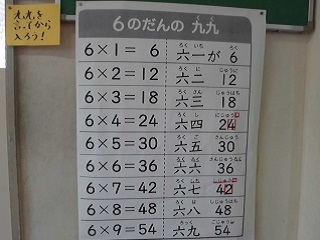 九九を
言ってから
入ろう!
6のだんの 九九
6×1= 6 六一が 6
6×2=12 六二 12
6×3=18 六三 18
6×4=24 六四 24
6×5=30 六五 30
6×6=36 六六 36
6×7=42 六七 42
6×8=48 六八 48
6×9=54 六九 54